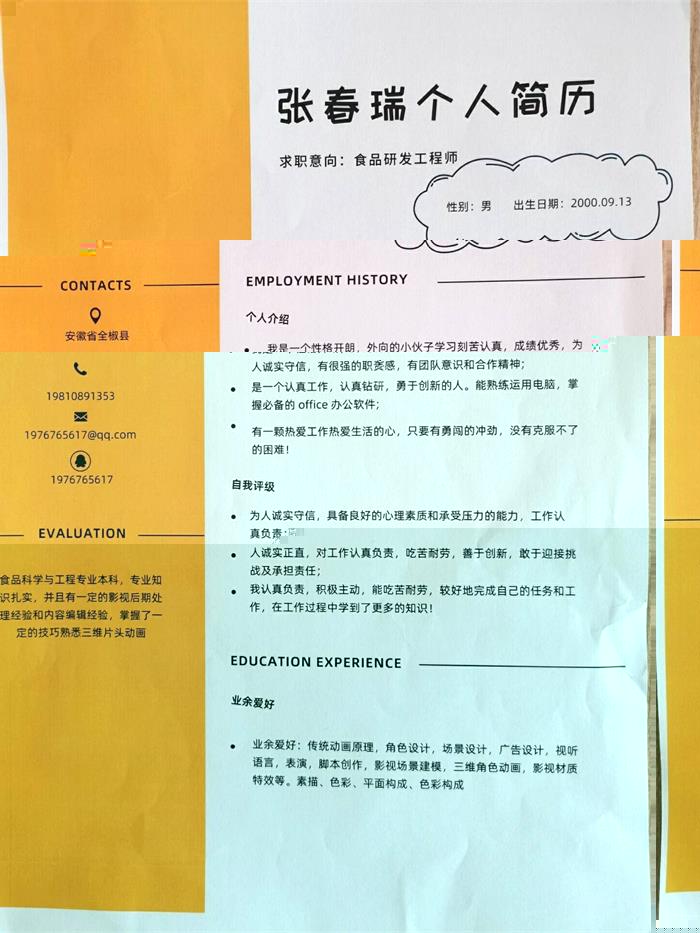 张春瑞个人简历
求职意向：食品研发工程师
性别：男 出生日期：2000.09.13
CONTACTS
安徽省全椒县
19810891353
1976765617@qq.com
1976765617
EVALUATION
食品科学与工程专业本科，专业知
识扎实，并且有一定的影视后期处
理经验和内容编辑经验，掌握了一
定的技巧熟悉三维片头动画
EMPLOYMENT HISTORY
个人介绍
我是一个性格开朗，外向的小伙子学习刻苦认真，成绩优秀，为
人诚实守信，有很强的职责感，有团队意识和合作精神；
是一个认真工作，认真钻研，勇于创新的人。能熟练运用电脑，掌
握必备的 office 办公软件；
有一颗热爱工作热爱生活的心，只要有勇闯的冲劲，没有克服不了
的困难！
自我评级
为人诚实守信，具备良好的心理素质和承受压力的能力，工作认
真负责
人诚实正直，对工作认真负责，吃苦耐劳，善于创新，敢于迎接挑
战及承担责任；
我认真负责，积极主动，能吃苦耐劳，较好地完成自己的任务和工
作，在工作过程中学到了更多的知识！
EDUCATION EXPERIENCE
业余爱好
业余爱好：传统动画原理，角色设计，场景设计，广告设计，视听
语言，表演，脚本创作，影视场景建模，三维角色动画，影视材质
特效等。素描、色彩、平面构成、色彩构成